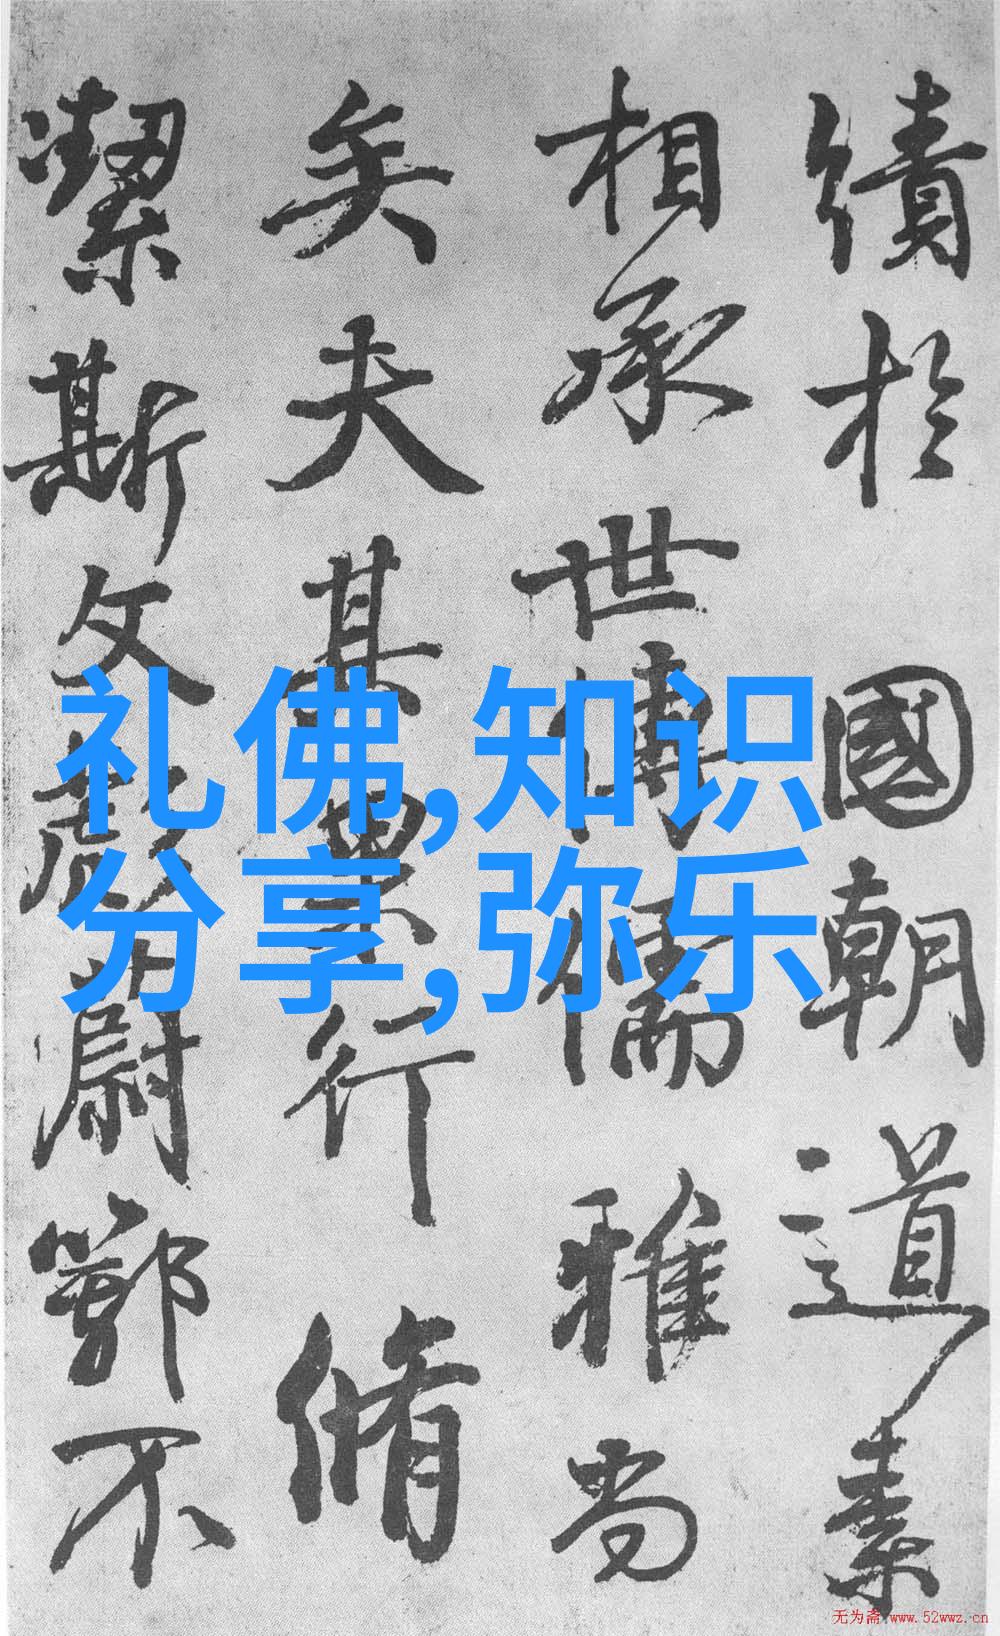 績於國朝道素
相承世傳儒雅尚
矣夫其果行脩
潔斯文彪蔚鄂不
礼佛,知识
分享,弥乐
无为斋 www.52wwz.cn